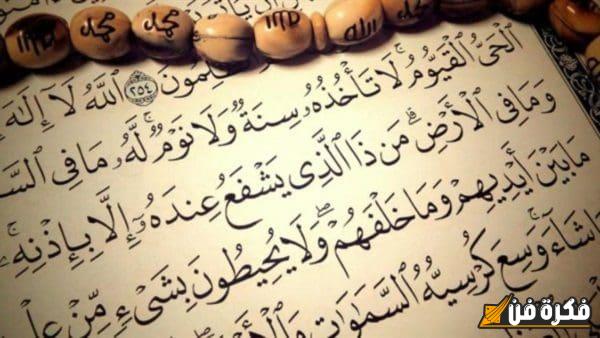 محمد محمد الله محمد
٢٥٤ ٱللَّهُ لَآ إِلَٰهَ
ٱلْحَىُّ ٱلْقَيُّومُ ۚ لَا تَأْخُذُهُۥ سِنَةٌ وَلَا نَوْمٌ ۚ لَّهُۥ مَا فِى ٱلسَّ
وَمَا فِى ٱلْأَرْضِ ۗ مَن ذَا ٱلَّذِى يَشْفَعُ عِندَهُۥٓ إِلَّا بِإِذْنِهِۦ ۚ
مَا بَيْنَ أَيْدِيهِمْ وَمَا خَلْفَهُمْ ۖ وَلَا يُحِيطُونَ بِشَىْءٍ مِّنْ عِلْ
شَآءَ ۚ وَسِعَ كُرْسِيُّهُ ٱلسَّمَٰوَٰتِ وَٱلْأَرْ
فكرة فن